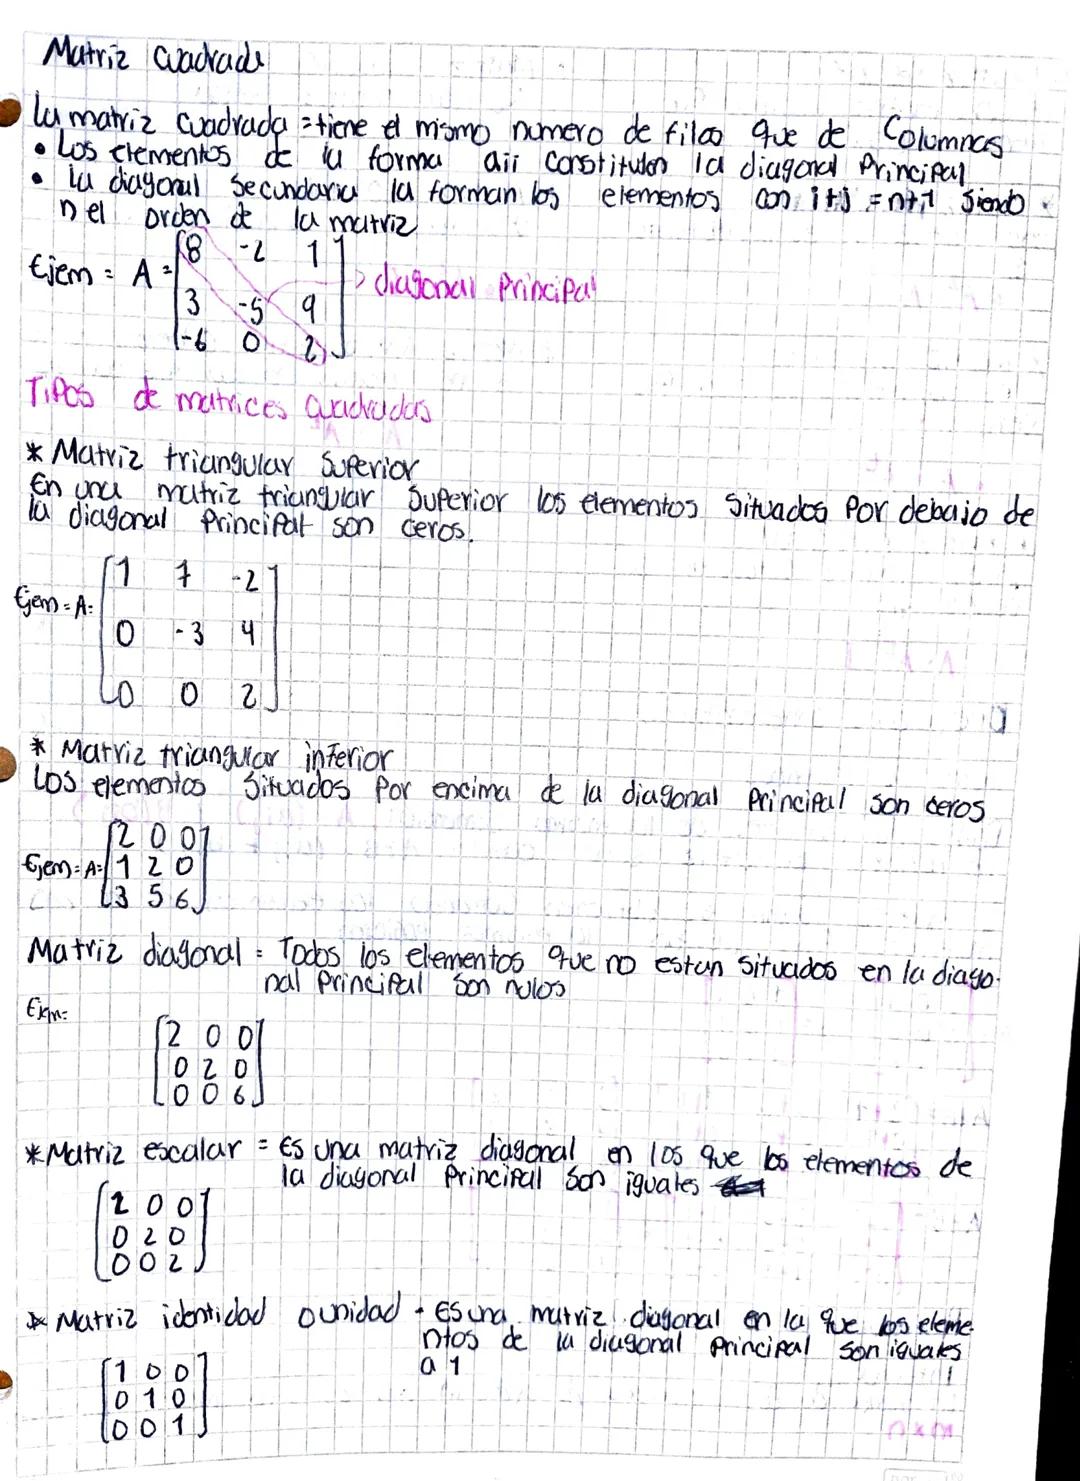 Matriz Cuadrada
La matriz Cuadrada = tiene el mismo numero de filas que de Columnas
• Los elementos de la forma aii constituyen la diagonal Principal
• La diagonal Secundaria la forman los elementos con i+j = n+1 Siendo
n el orden de la matriz
Ejem = A = [8 -2 1
3 -5 9
-6 0 2]
> diagonal Principal
Tipos de matrices Cuadradas
* Matriz triangular Superior
En una matriz triangular Superior los elementos Situados Por debajo de
la diagonal Principal son ceros.
Ejem = A = [1 7 -2
0 -3 4
0 0 2]
* Matriz triangular inferior
Los elementos Situados Por encima de la diagonal Principal son ceros
Ejem = A = [2 0 0
1 2 0
3 5 6]
Matriz diagonal = Todos los elementos que no estan Situados en la diago-
nal Principal Son nulos
Ejem:
[2 0 0
0 2 0
0 0 6]
* Matriz escalar = Es una matriz diagonal en los que los elementos de
la diagonal Principal Son iguales
[2 0 0
0 2 0
0 0 2]
* Matriz identidad o unidad - Es una matriz diagonal en la que los eleme-
ntos de la diagonal Principal Son iguales
a 1
[1 0 0
0 1 0
0 0 1]